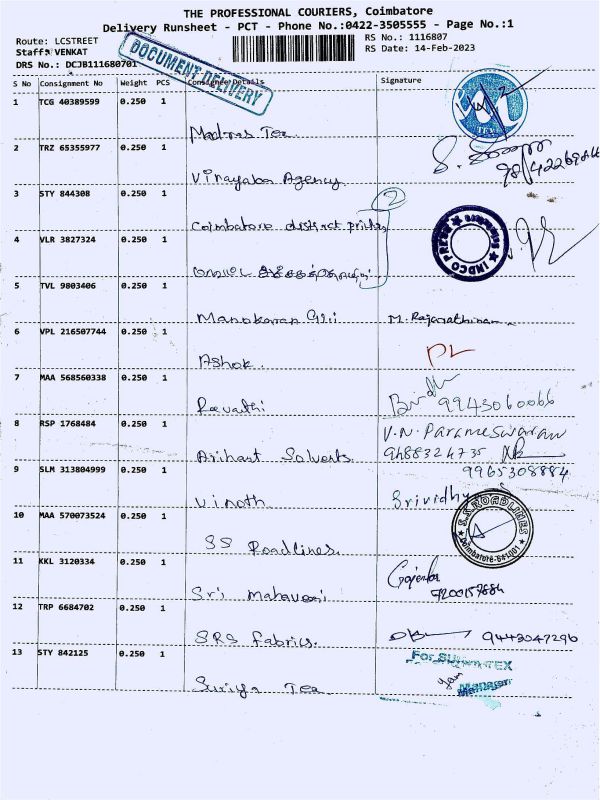 THE PROFESSIONAL COURIERS, Coimbatore
Delivery Runsheet - PCT - Phone No.:0422-3505555 - Page No.:1
Route: LCSTREET
RS No.: 1116807
Staff: VENKAT
RS Date: 14-Feb-2023
DRS No.: DCJB111680701
DOCUMENT DELIVERY
S No Consignment No Weight PCS Consignee Details Signature
1 TCG 40389599 0.250 1
Madras Tex
2 TRZ 65355977 0.250 1
Vinayaba Agency
3 STY 844308 0.250 1
2
Coimbatore district
4 VLR 3827324 0.250 1
INDCO PRESS
5 TVL 9803406 0.250 1
Manokaran Giri M. Rajarathinam
6 VPL 216507744 0.250 1
Ashok
7 MAA 568560338 0.250 1
Revathi 9943060066
8 RSP 1768484 0.250 1
V.N. Parameswaran
Arihant Solvents 9488324735
9 SLM 313804999 0.250 1
9965308884
Vinoth Srividhy
10 MAA 570073524 0.250 1
S.S. ROADLINES
Coimbatore-641001
SS Roadlines
11 KKL 3120334 0.250 1
Sri Mahaveer Gajendra
9200157884
12 TRP 6684702 0.250 1
SRS Fabrics. 9443047296
13 STY 842125 0.250 1
For TEX
Manager
Suriya Tex